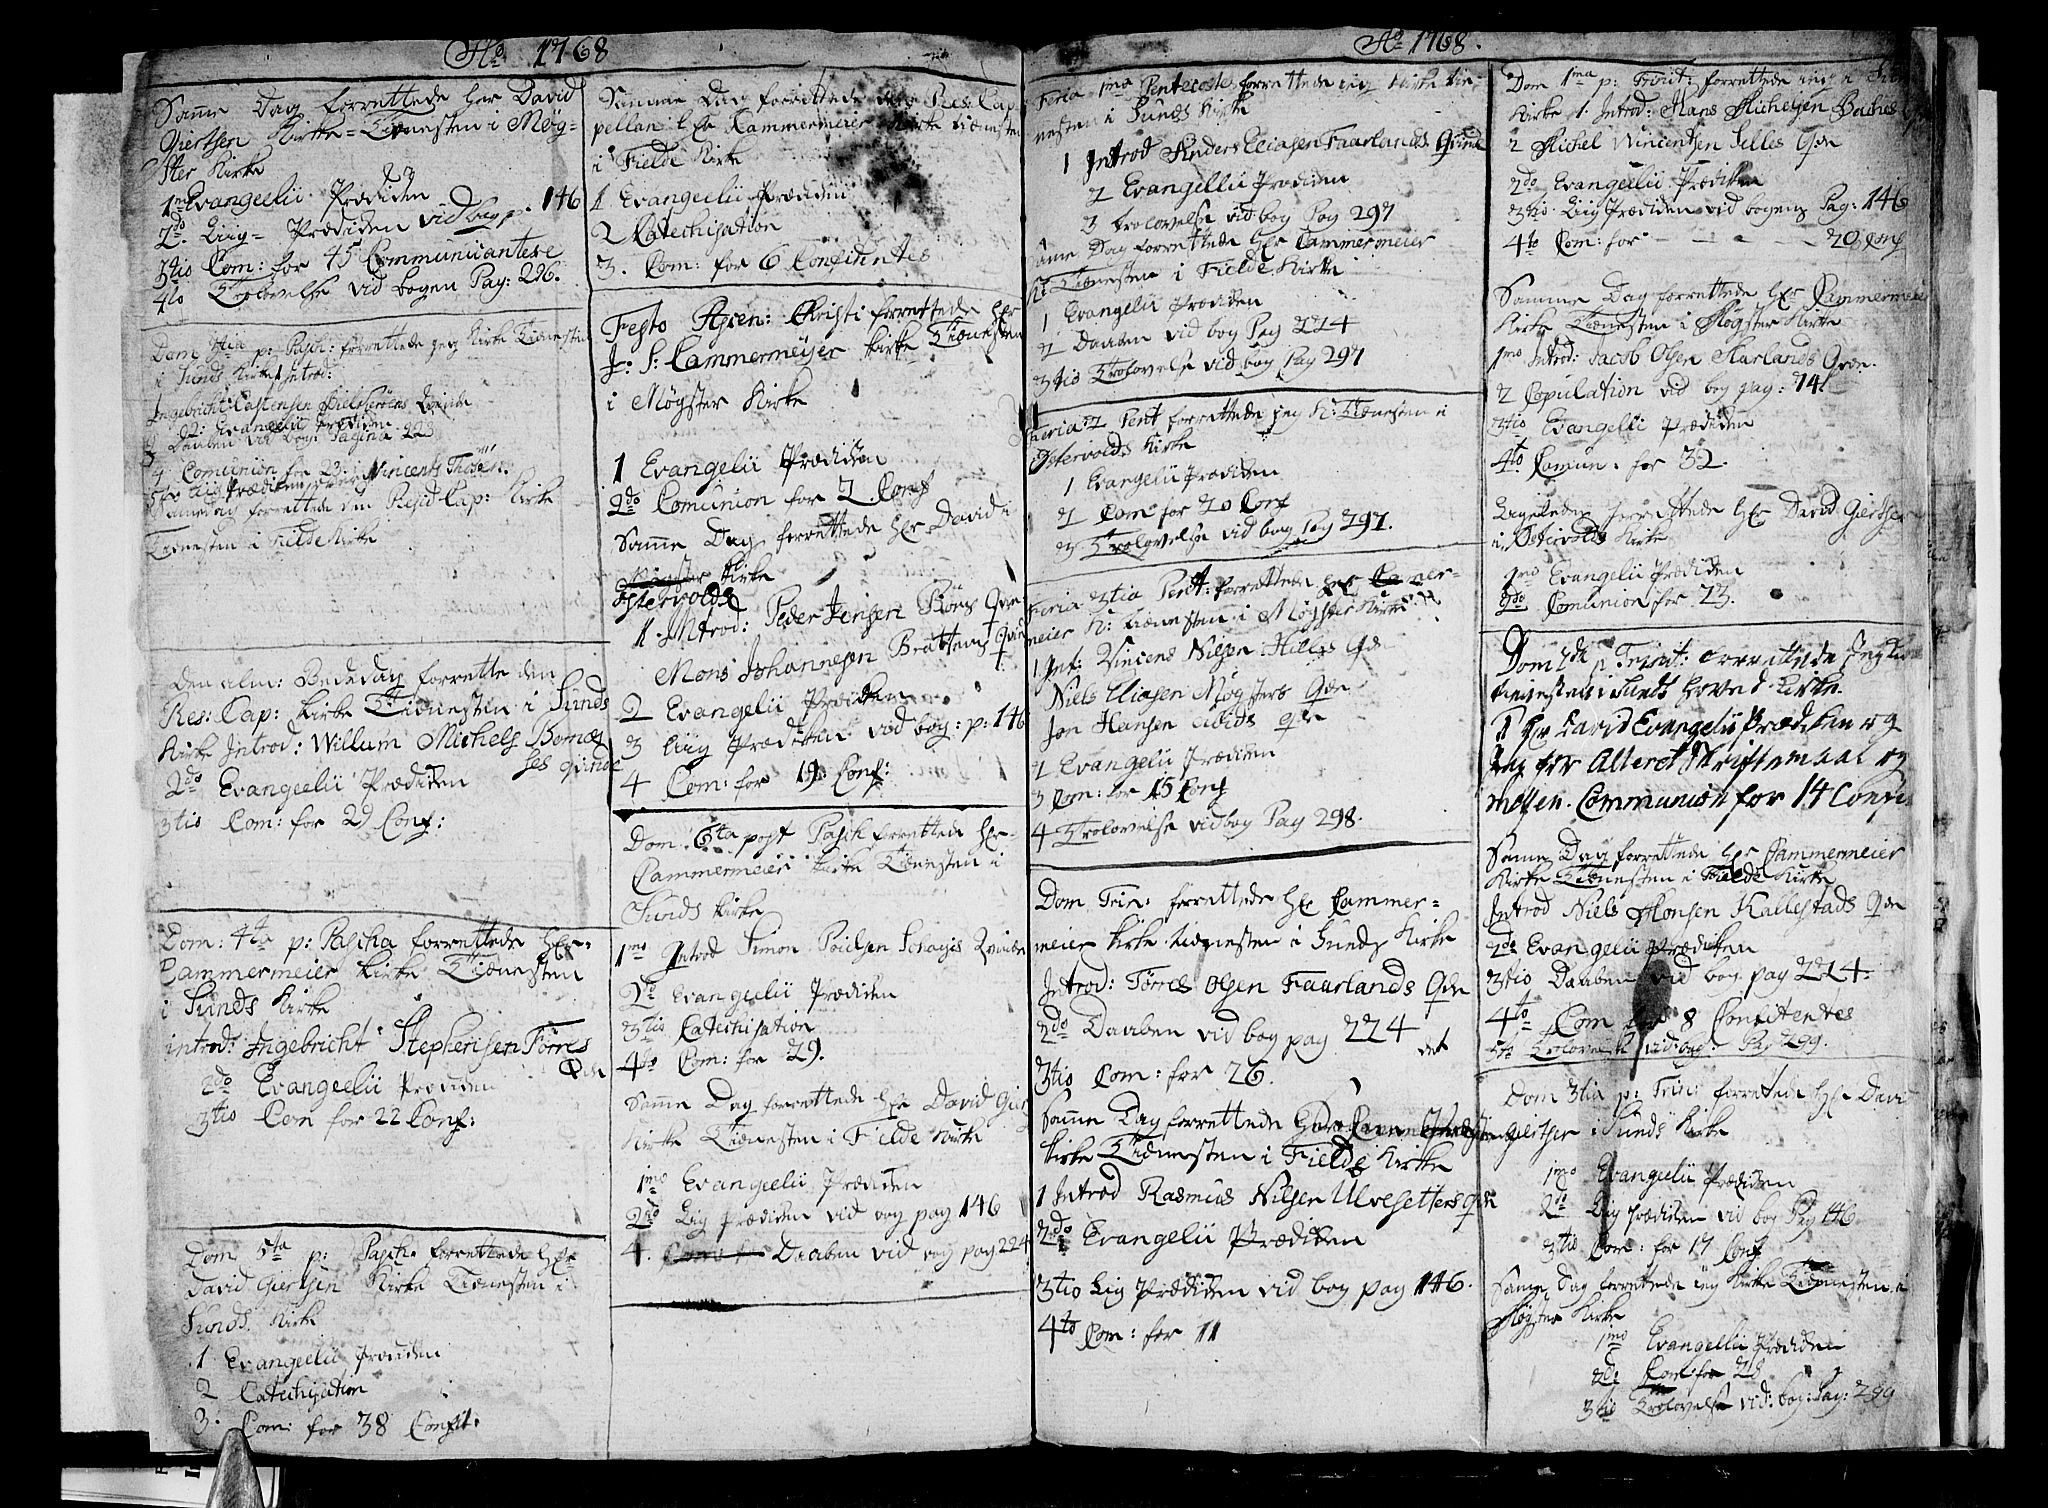 Ao 1768
Samme Dag forrettede her David
Giertsen Kirke-Tienesten i Møg-
ster Kirke
1mo Evangelii Prædiken
2do Liig- Prædiken vid bog p. 146
3tio Com: for 45 Communicantere
4to Trolovelse vid bogen Pag: 296.
Dom 3tia p: Pasch: forrettede jeg Kirke Tienesten
i Sunds Kirke Introd:
Ingebricht Castensen
2: Evangelii Prædiken
3 Daaben vid bog: Pagina 223
4 Comunion for 23:
5to Lig Prædiken over Vincents
Samedag forrettede den Resid Cap: Kirke
Tienesten i Fielde Kirke
Den alm: Bededag forrette den
Res: Cap: Kirke Tienesten i Sunds
Kirke Introd: Willum Michels Bornæ
ses qvinde
2do Evangelii Prædiken
3tio Com: for 29 Conf:
Dom: 4ta p: Pascha forrettede Hr:
Cammermeier Kirke Tienesten
i Sunds Kirke
introd: Ingebricht Stephensen Torres
Qde
2do Evangelii Prædiken
3tio Com for 22 Conf:
Dom 5ta p: Pasch: forrettede Hr
David Giertsen Kirke Tienesten i
Sunds Kirke
1 Evangelii Prædiken
2 Catechisation
3. Com: for 38 Confit:
Samme Dag forrettede den Res: Cap
pellan Hr Cammermeier Kirke Tienesten
i Fielde Kirke
1 Evangelii Prædiken
2 Catechisation
3. Com: for 6 Confitentes
Festo Ascen: Christi forrettede Hr
J: S: Cammermeÿer Kirke Tienesten
i Møgster Kirke
1 Evangelii Prædiken
2do Comunion for 2 Conf
Samme Dag forrettede Hr David i
Møgster Kirke
Østervolds
1. Introd: Peder Jensen Røns Qde
Mons Johannesen Brattens Qvinde
2 Evangelii Prædiken
3 Liig Prædiken vid bog: p: 146
4 Com: for 19 Conf:
Dom. 6ta post Pasch forrettede Hr
Cammermeier Kirke Tienesten i
Sunds Kirke
1mo Introd Simon Poulsen Qvinde
2do Evangelii Prædiken
3tio Catechisation
4to Com: for 29.
Samme Dag forrettede Hr David Giert
Kirke Tienesten i Fielde Kirke
1mo Evangelii Prædiken
2do Lig Prædiken vid bog pag 146
4. Daaben vid bog pag 224
Ao 1768.
Feria 1ma Pentecoste forrettede jeg Kirke Tie-
nesten i Sunds Kirke
1 Introd Anders Eliasen Faarlands Qvinde
2 Evangelii Prædiken
3 Trolovelse vid bog Pag 297
Same Dag forrettede Hr Cammermeier
K: Tienesten i Fielde Kirke
1 Evangelii Prædiken
2 Daaben vid bog Pag 224
3tio Trolovelse vid bog Pag 297
Feria 2 Pent forrettede jeg K: Tienesten i
Østervolds Kirke
1 Evangelii Prædiken
2 Com for 20 Conf
3 Trolovelse vid bog Pag 297.
Feria 3tia Pent: forrettede Hr Camer-
meier K: Tienesten i Møgster Kirke
1 Int: Vincens Nilsen Hilles Qde
Niels Eliasen Møgsters Qde
Jon Hansen Qde
2 Evangelii Prædiken
3 Com: for 15 Conf
4 Trolovelse vid bog Pag 298.
Dom Trin: forrettede Hr Cammer-
meier Kirke Tienesten i Sunds Kirke
Introd: Torres Olsen Faarlands Qde
2do Daaben vid bog pag 224
3tio Com: for 26.
Samme Dag forrettede
Kirke Tienesten i Fielde Kirke
1 Introd Rasmus Nilsen Ulvesetters Qde
2do Evangelii Prædiken
3tio Lig Prædiken vid bog pag 146.
4to Com: for 11
Dom 1ma p: Trinit: forrettede jeg i
Kirke 1. Introd: Hans Michelsen
2 Michel Vincentsen Selles Qde
2do Evangelii Prædiken
3tio Liig Prædiken vid bogens Pag: 146
4to Com: for - - - 20 Conf
Samme Dag forrettede Hr Cammermeier
Kirke Tienesten i Møgster Kirke
1mo Introd: Jacob Olsen Harlands Qde.
2 Copulation vid bog pag: 741
3tio Evangelii Prædiken
4to Comun: for 32.
Ligeledes forrettede Hr David Giertsen
i Østervolds Kirke
1mo Evangelii Prædiken
2do Comunion for 23.
Dom 2da p Trinit: forrettede Jeg
Tienesten i Sunds hoved Kirke.
1 Hr David Evangelii Prædiken og
Jeg for Alteret Skriftemaal og
Messen. Communion for 14 Conf
Same Dag forrettede Hr Cammermeier
Kirke Tienesten i Fielde Kirke
Introd Niels Monsen Kallestads Qde
2do Evangelii Prædiken
3tio Daaben vid bog pag 224.
4to Com for 8 Confitentes
5to Trolovelse vid bog: Pag 299.
Dom 3tia p: Trin: forrettede Hr David
Giertsen i Sunds Kirke
1mo Evangelii Prædiken
2do Lig Prædiken vid bog Pag 146
3tio Com: for 17 Conf
Same Dag forrettede jeg Kirke Tienesten i
Møgster Kirke
1mo Evangelii Prædiken
2do Com for 28
3tio Trolovelse vid: bog: Pag: 299